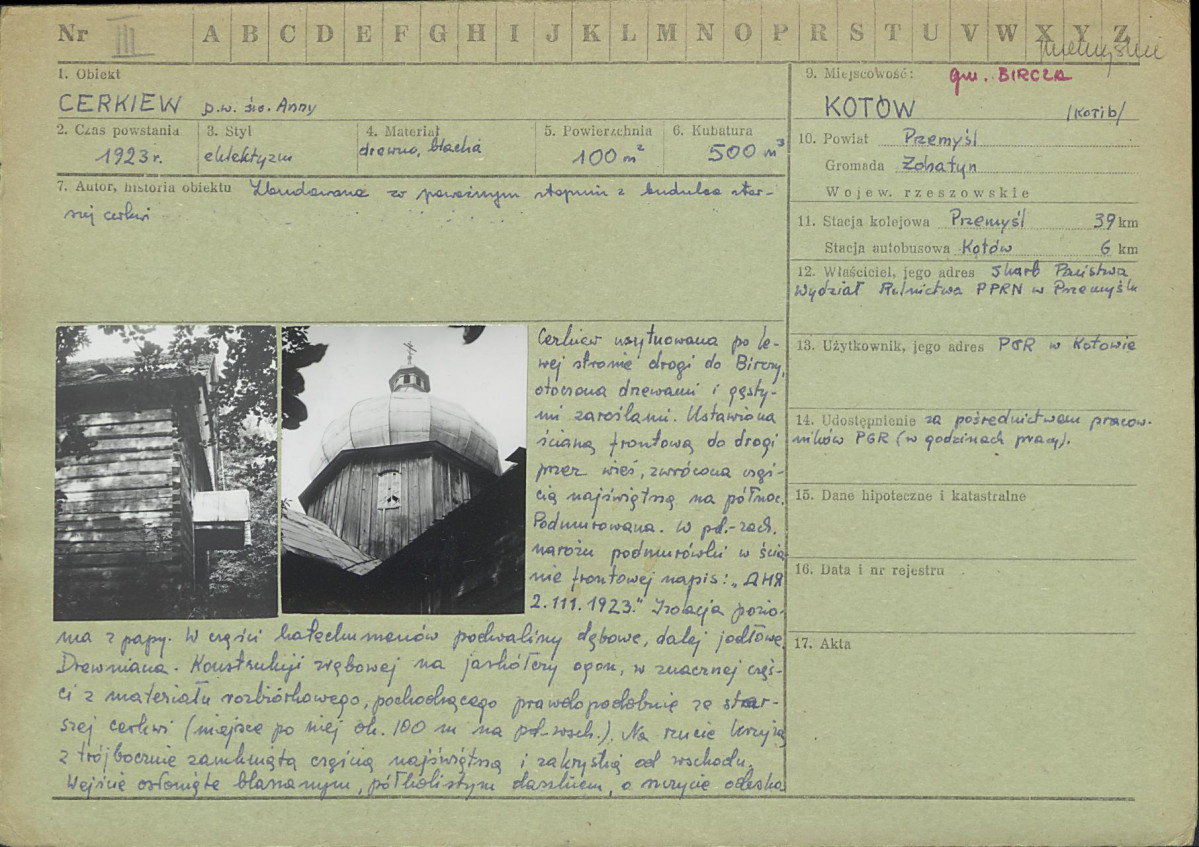 Nr III A B C D E F G H I J K L M N O P R S T U V W X Y Z
Przemyślu
1. Obiekt
CERKIEW p.w. św. Anny
2. Czas powstania
1923 r.
3. Styl
eklektyzm
4. Materiał
drewno, blacha
5. Powierzchnia
100 m²
6. Kubatura
500 m³
7. Autor, historia obiektu Zbudowana w poważnym stopniu z budulca star-
szej cerkwi
Cerkiew usytuowana po le-
wej stronie drogi do Birczy,
otoczona drzewami i gęsty-
mi zaroślami. Ustawiona
ścianą frontową do drogi
przez wieś, zwrócona czę-
cią najświętszą na północ.
Podmurowana. W pd.-zach.
narożu podmurówki w ścia
nie frontowej napis: „ДНЯ
2.III.1923." Izolacja pozio-
ma z papy. W części katechumenów podwaliny dębowe, dalej jodłowe.
Drewniana. Konstrukcji zrębowej na jaskółczy ogon, w znacznej częś-
ci z materiału rozbiórkowego, pochodzącego prawdopodobnie ze star-
szej cerkwi (miejsce po niej ok. 100 m na pd.-wsch.). Na rzucie krzyża
z trójbocznie zamkniętą częścią najświętszą i zakrystią od wschodu.
Wejście osłonięte blaszanym, półkolistym daszkiem, o szczycie odeska
9. Miejscowość: gm. BIRCZA
KOTÓW /KOTIB/
10. Powiat Przemyśl
Gromada Żohatyn
Wojew. rzeszowskie
11. Stacja kolejowa Przemyśl 39 km
Stacja autobusowa Kotów 6 km
12. Właściciel, jego adres Skarb Państwa
Wydział Rolnictwa PPRN w Przemyślu
13. Użytkownik, jego adres PGR w Kotowie
14. Udostępnienie za pośrednictwem pracow-
ników PGR (w godzinach pracy).
15. Dane hipoteczne i katastralne
16. Data i nr rejestru
17. Akta